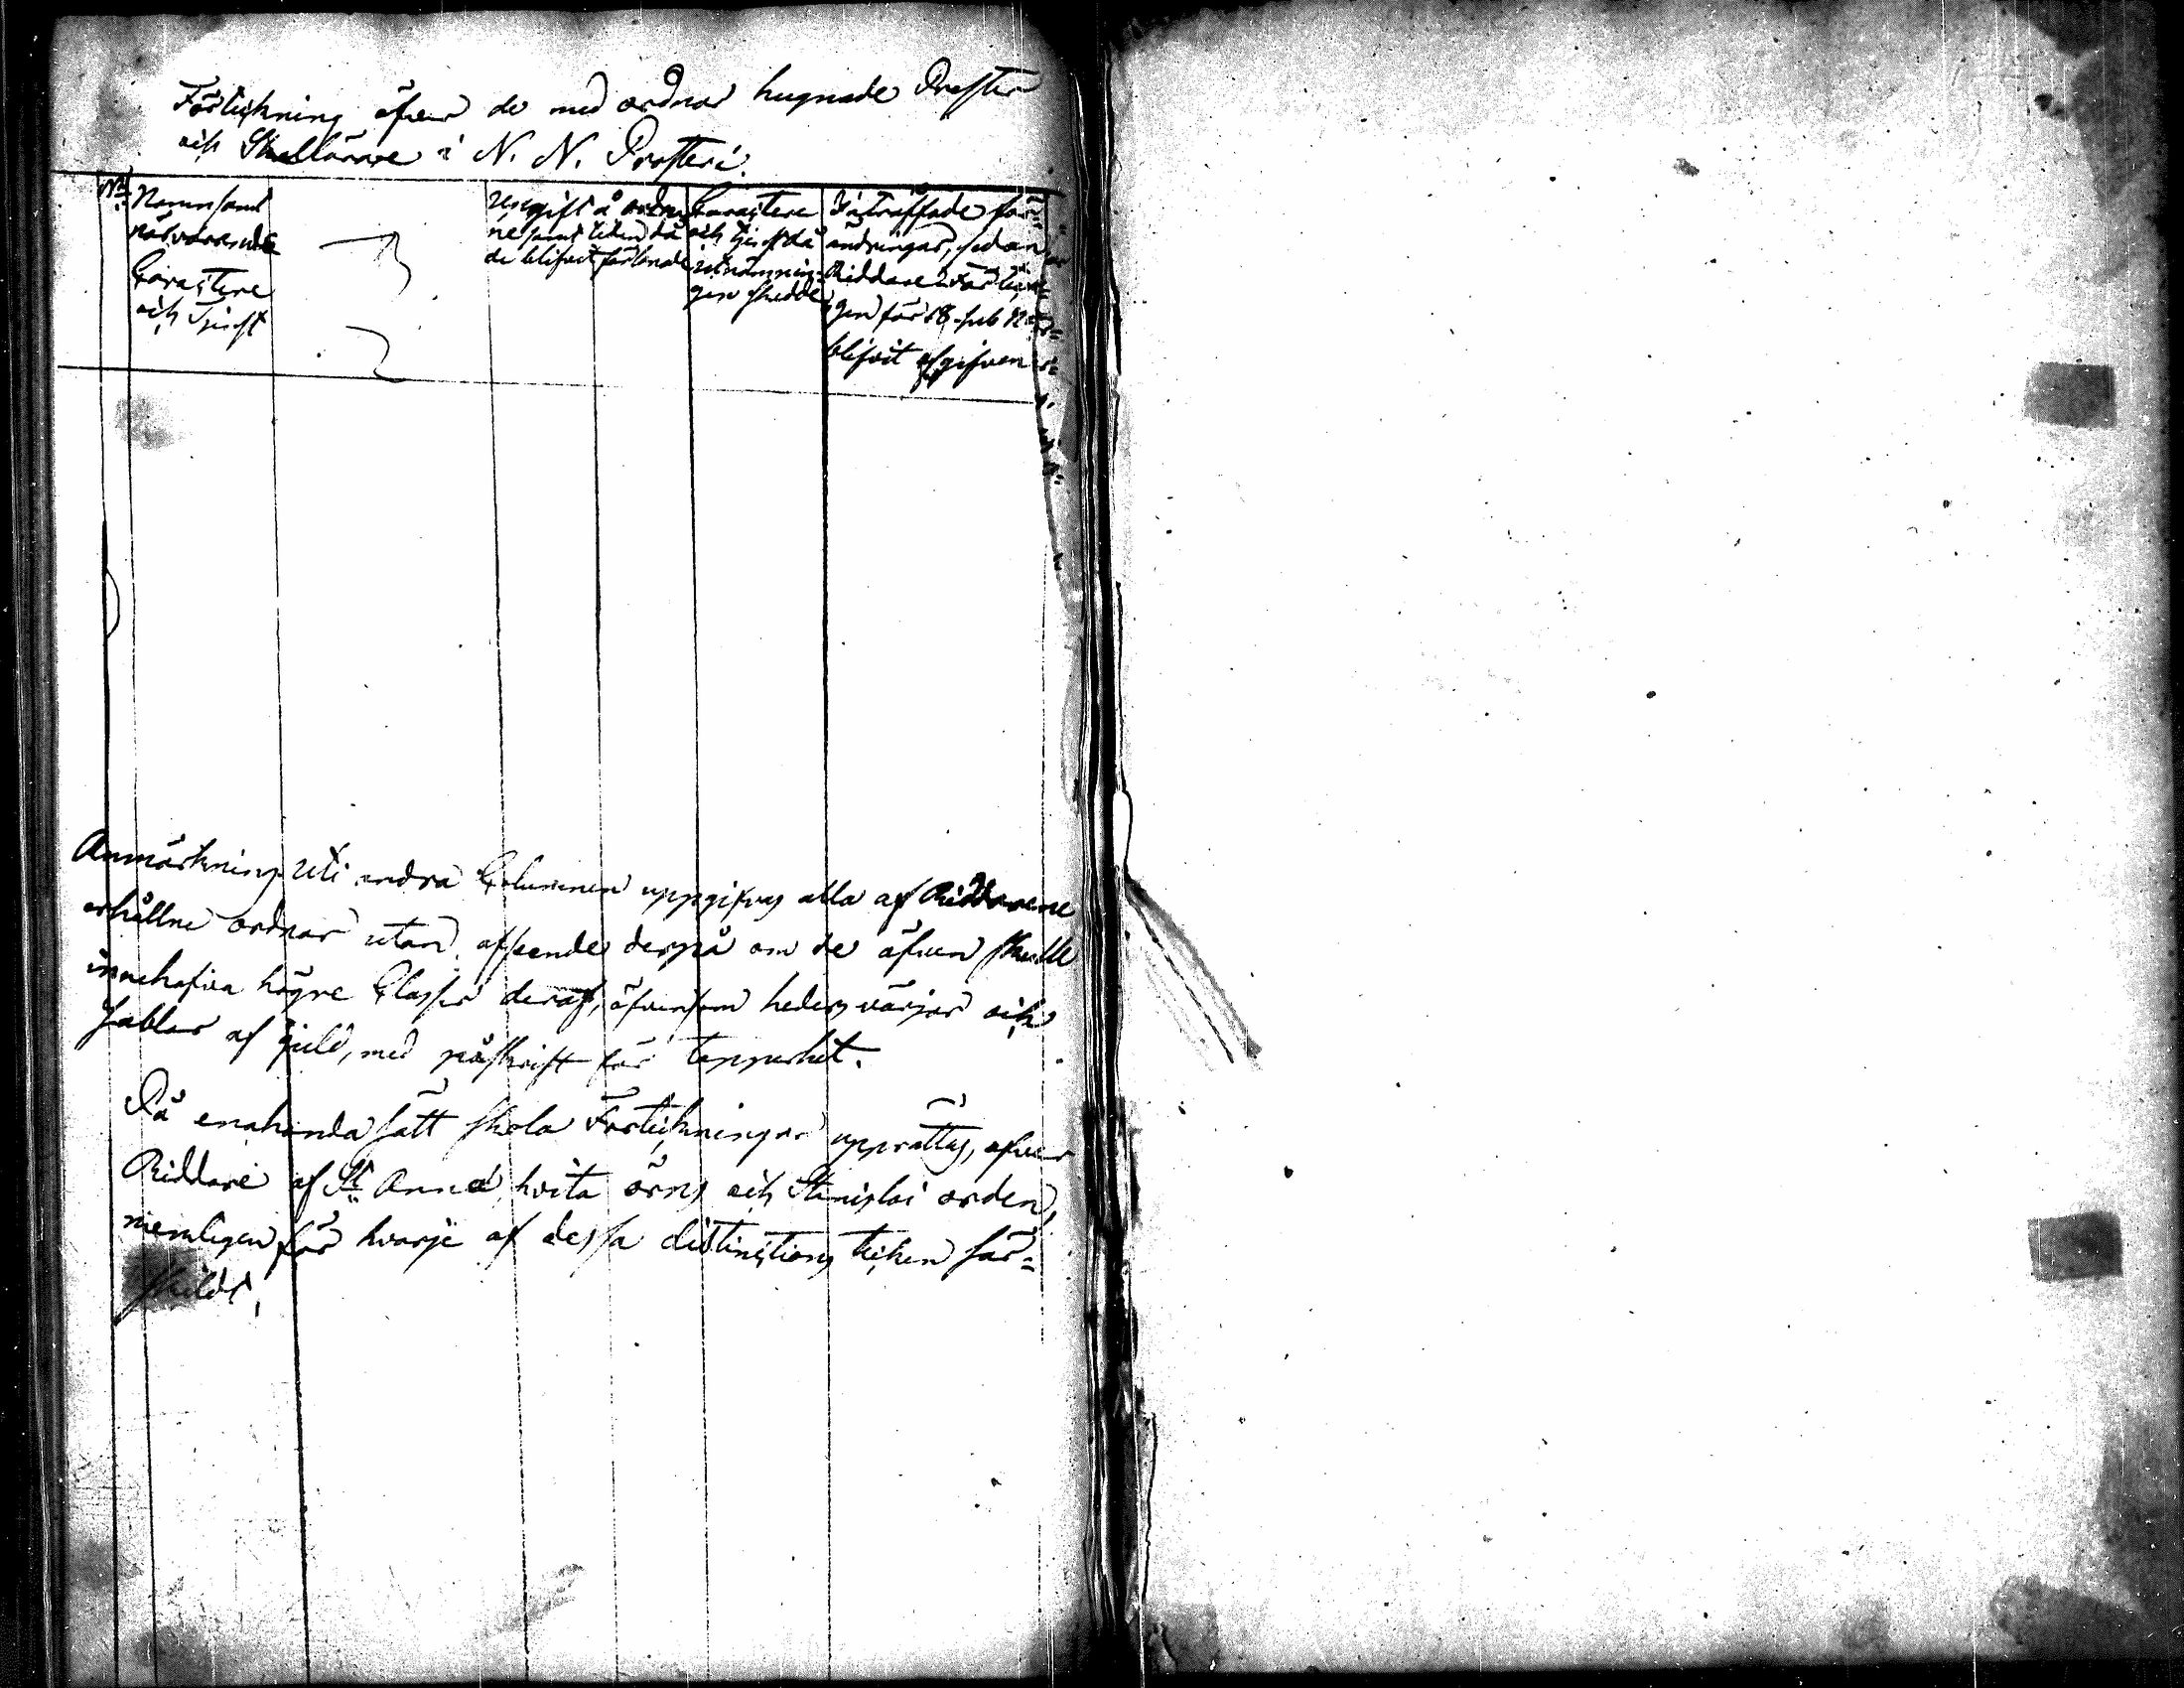 Förteckning öfver de med ordnar hugnade Prester
och Skollärare i N. N. Prosteri.
No
Namn samt
närvarande
Caractere
och Tjenst
Uppgift å ordnar
ne samt tiden då
de blifvit förlänade
Caractere
och tjenst då
utnämnin-
gen skedde
Inträffade för-
ändringar, sedan
Riddare Förteck-
gen för 18
blifvit afgifven
Anmärkning Uti andra Columnen uppgifves alla af Riddarene
erhållne ordnar utan afseende derpå om de äfven skulle
innehafva högre Classer deraf, äfvensom heders värjor och
sablar af guld, med påskrift för tapperhet.
På enahanda sätt skola Förteckningar upprättas, öfver
Riddare af St. Annæ, hvita örns och Stanislai orden,
nemligen för hvarje af dessa distinctions tecken sär-
skildt.